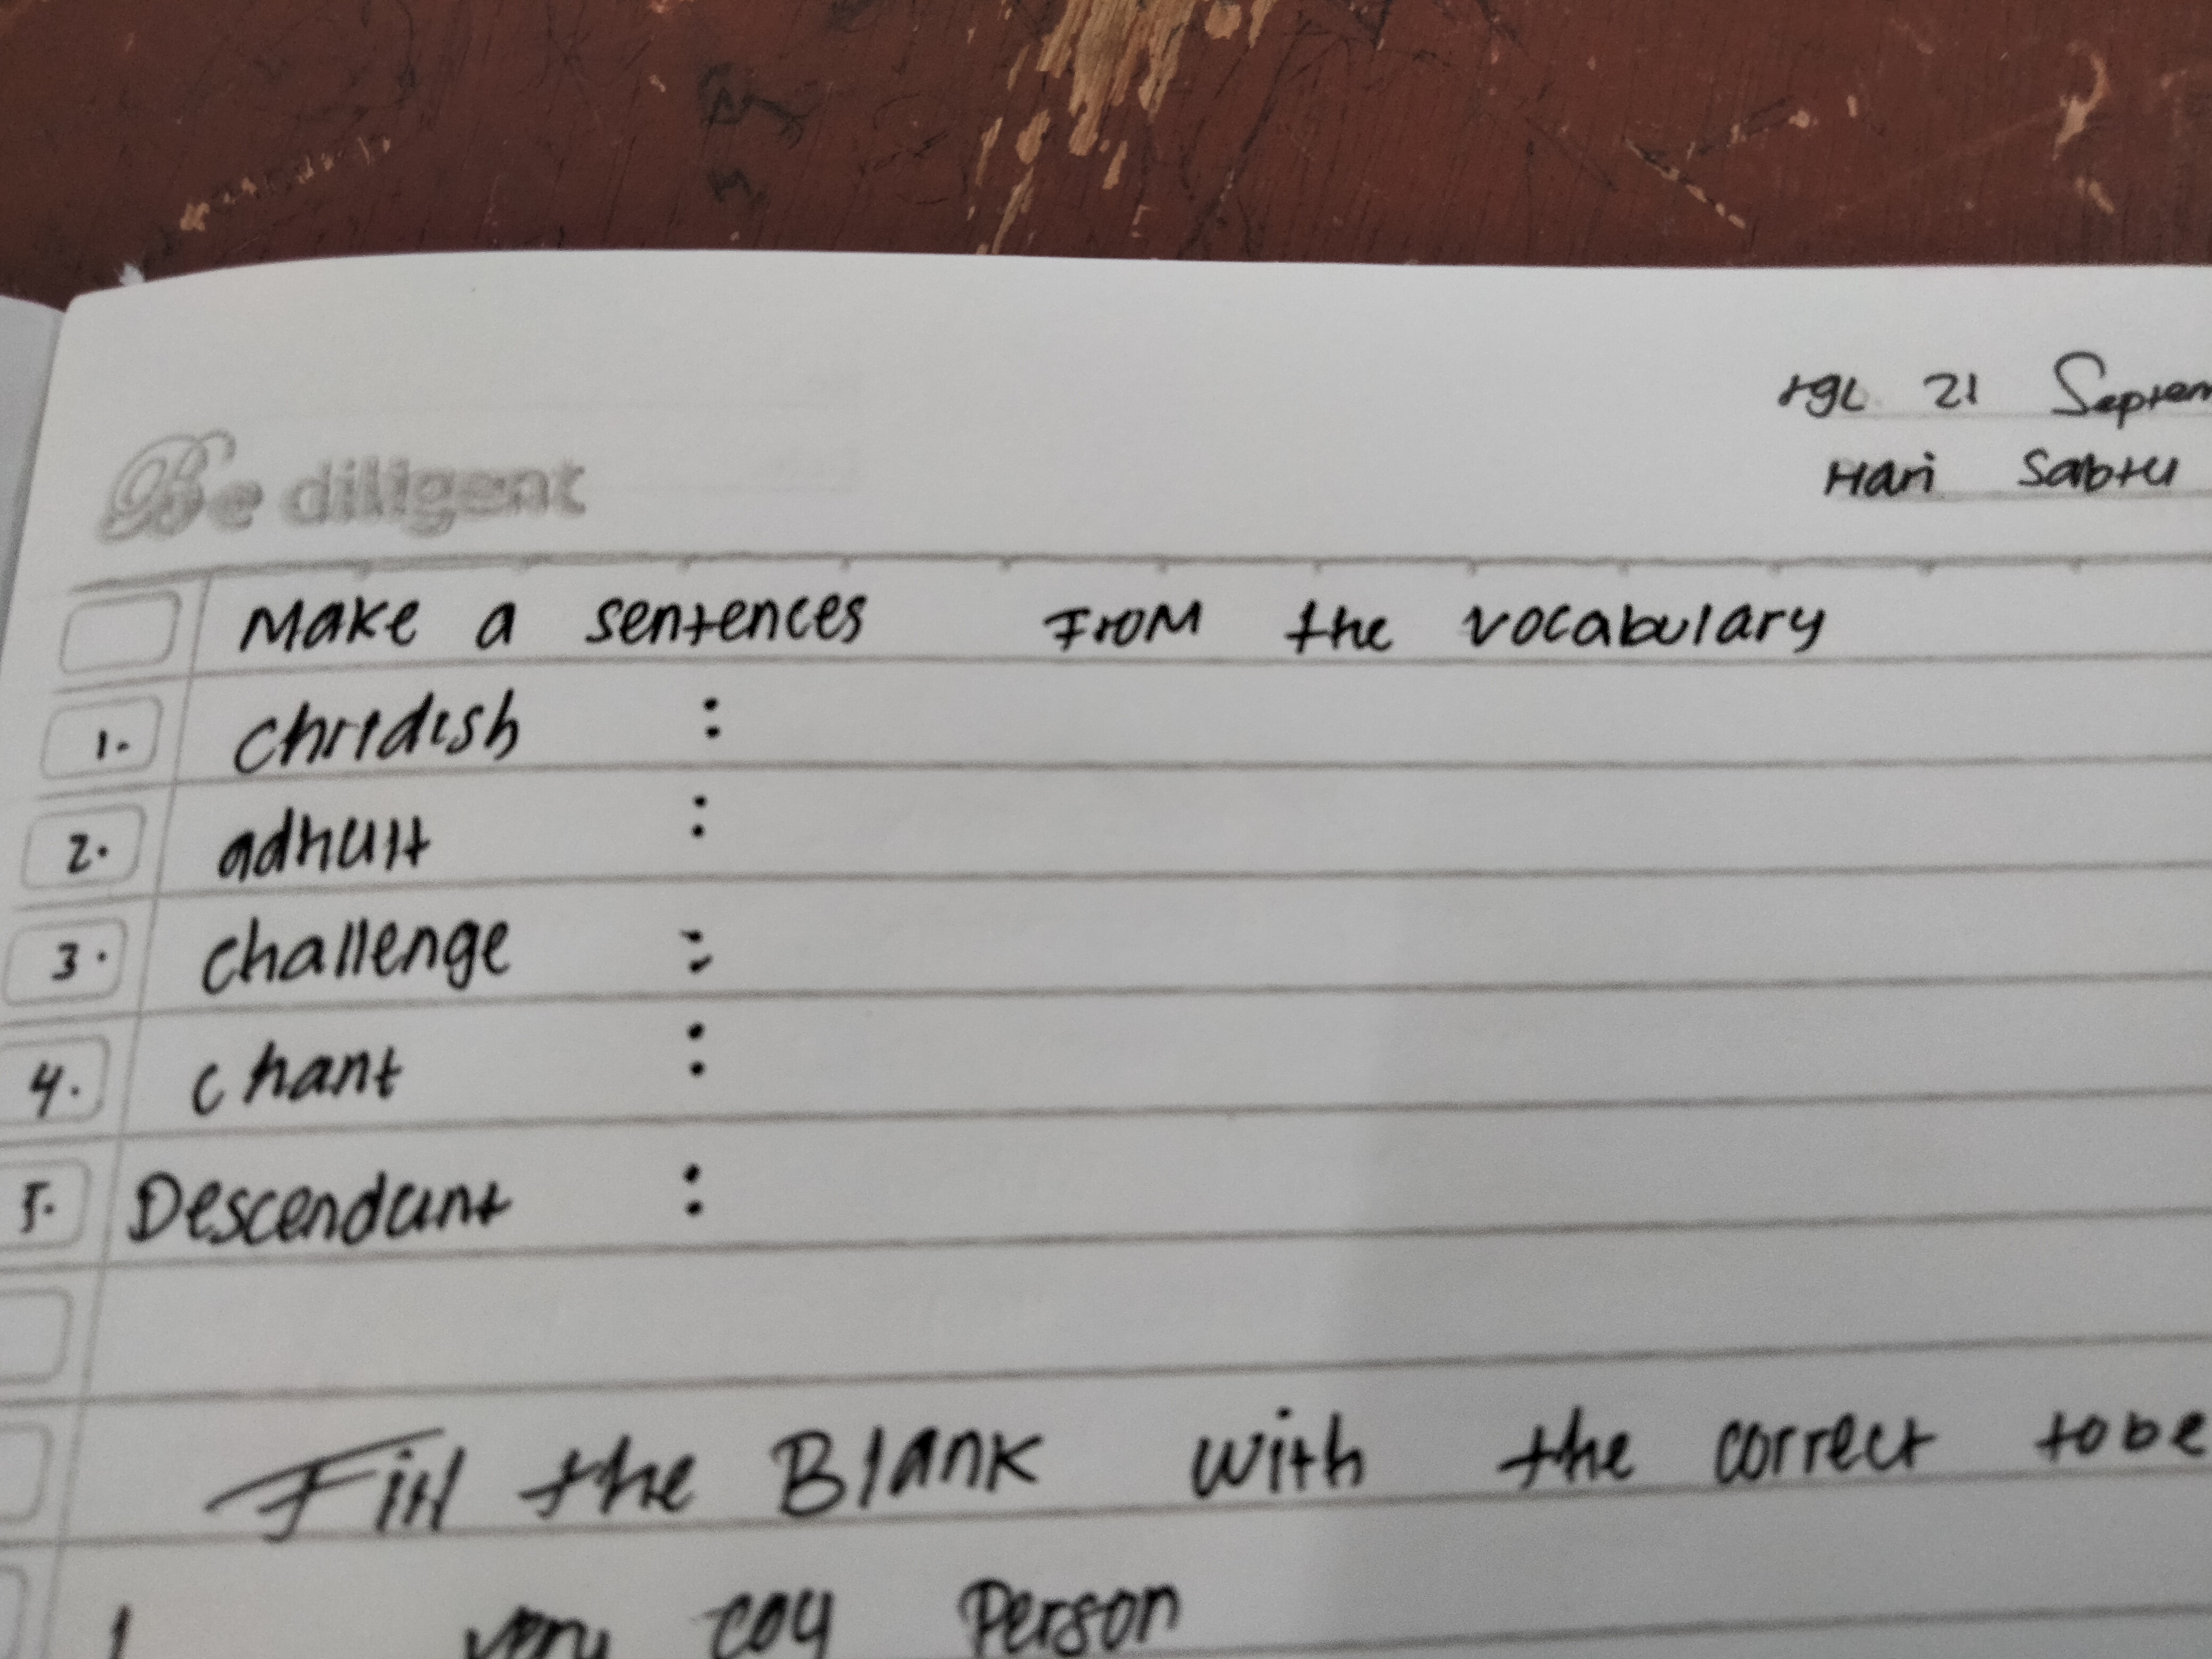 tgl 21 Septem
Hari Sabtu
Be diligent
Make a sentences From the vocabulary
1. chridish :
2. adhult :
3. challenge :
4. chant :
5. Descendant :
Fill the Blank with the correct tobe
1 very coy Person